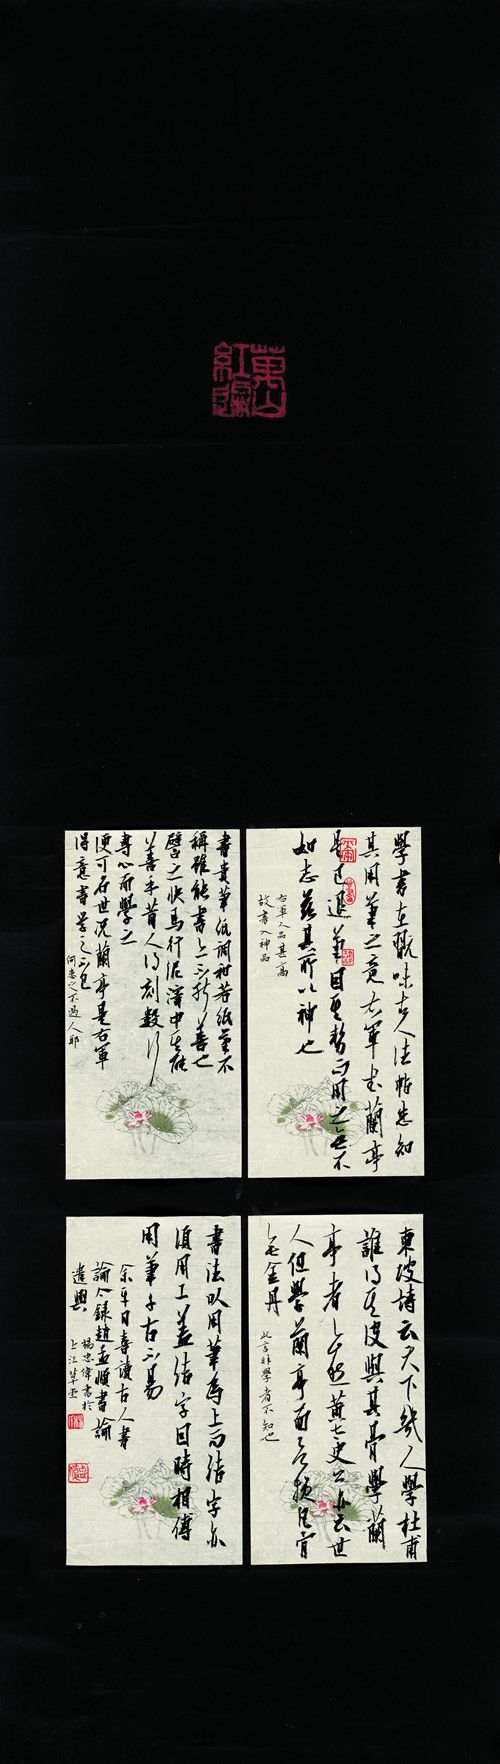 萬山
紅遍
學書在翫味古人法帖悉知
其用筆之意右軍書蘭亭
是已退筆因其勢而用之無不
如志茲其所以神也
右軍人品甚高
故書入神品
書貴筆紙調和若紙筆不
稱雖能書亦不能善也
譬之快馬行泥濘中其能
善乎昔人得刻數行
專心而學之
便可名世況蘭亭是右軍
得意書學之不已
何患之不過人耶
東坡詩云天下幾人學杜甫
誰得其皮與其骨學蘭
亭者亦然黃太史公亦云世
人但學蘭亭面欲換凡骨
無金丹
此言非學者不知也
書法以用筆為上而結字亦
須用工蓋結字因時相傳
用筆千古不易
余平日喜讀古人書
論今錄趙孟頫書論
遣興
楊忠偉書於
上江草堂